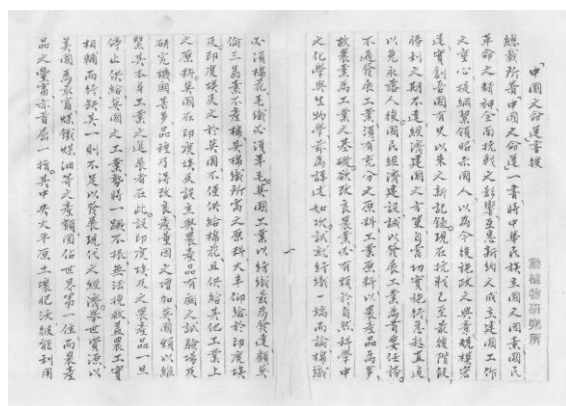 「中国之命運」書後
總裁所著「中国之命運」一書將中華民族立國之因素國民
革命之精神全面抗戰之影響互惠新約之成立建國工作
之重心提綱絜領昭示國人以為今後施政之典要規模宏
遠實創吾國有史以來之新記錄現在抗戰已至最後階段
勝利之期不遠經濟建國之方策自當切實施行急起直追
以免永落人後國民經濟建設誠以發展工業為首要任務
不過發展工業須有充分之原料工業原料以農產品為多
故農業為工業之基礎欲改良農業必有賴於自然科學中
之化學與生物學茲為詳述如次試就紡織一端而論棉織
動植物研究所
一
必須棉花毛織必須羊毛英國工業以紡織最為發達顧英
倫三島素不產棉其棉織所需之原料大半仰給於印度埃
及印度埃及之於英國不僅供給棉花且供給其他工業上
之原料英國在印度埃及設立與農產品有關之試驗場及
研究機關甚多品種乃得改良產量因之增加英國賴以維
繫其本身工業之進展者在此設印度埃及之農產品一旦
停止供給英國之工業勢將一蹶不振無法挽救蓋農工實
相輔而行缺其一則不足以發展現代之經濟舉世資源以
美國為最富煤鐵煤油等之產額固佔世界第一位而農產
品之豐富亦首屈一指其中央大平原土壤肥沃能利用